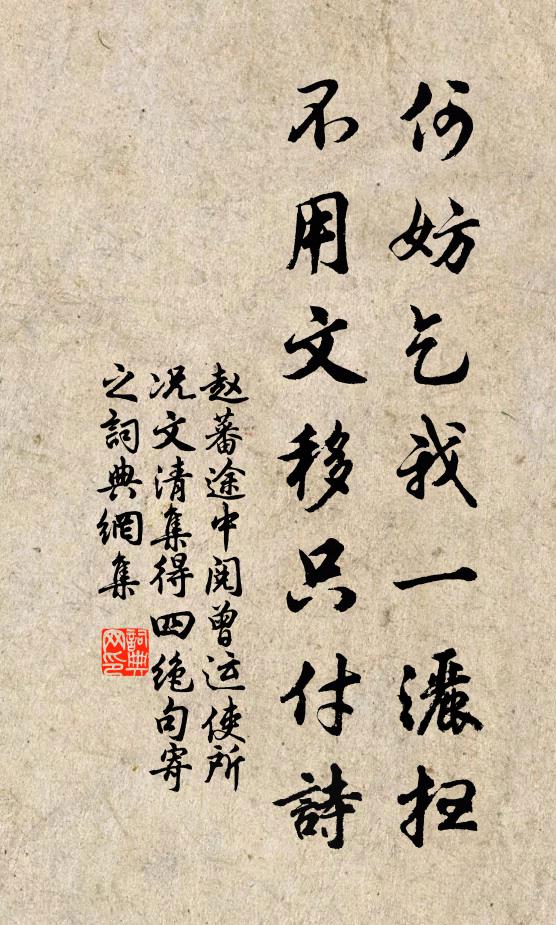 何妨乞我一灑扭
不用文移只付詩
赵蕃途中閱曾运使所
况文清集得四绝句寄
之詞典網集
詞典網印